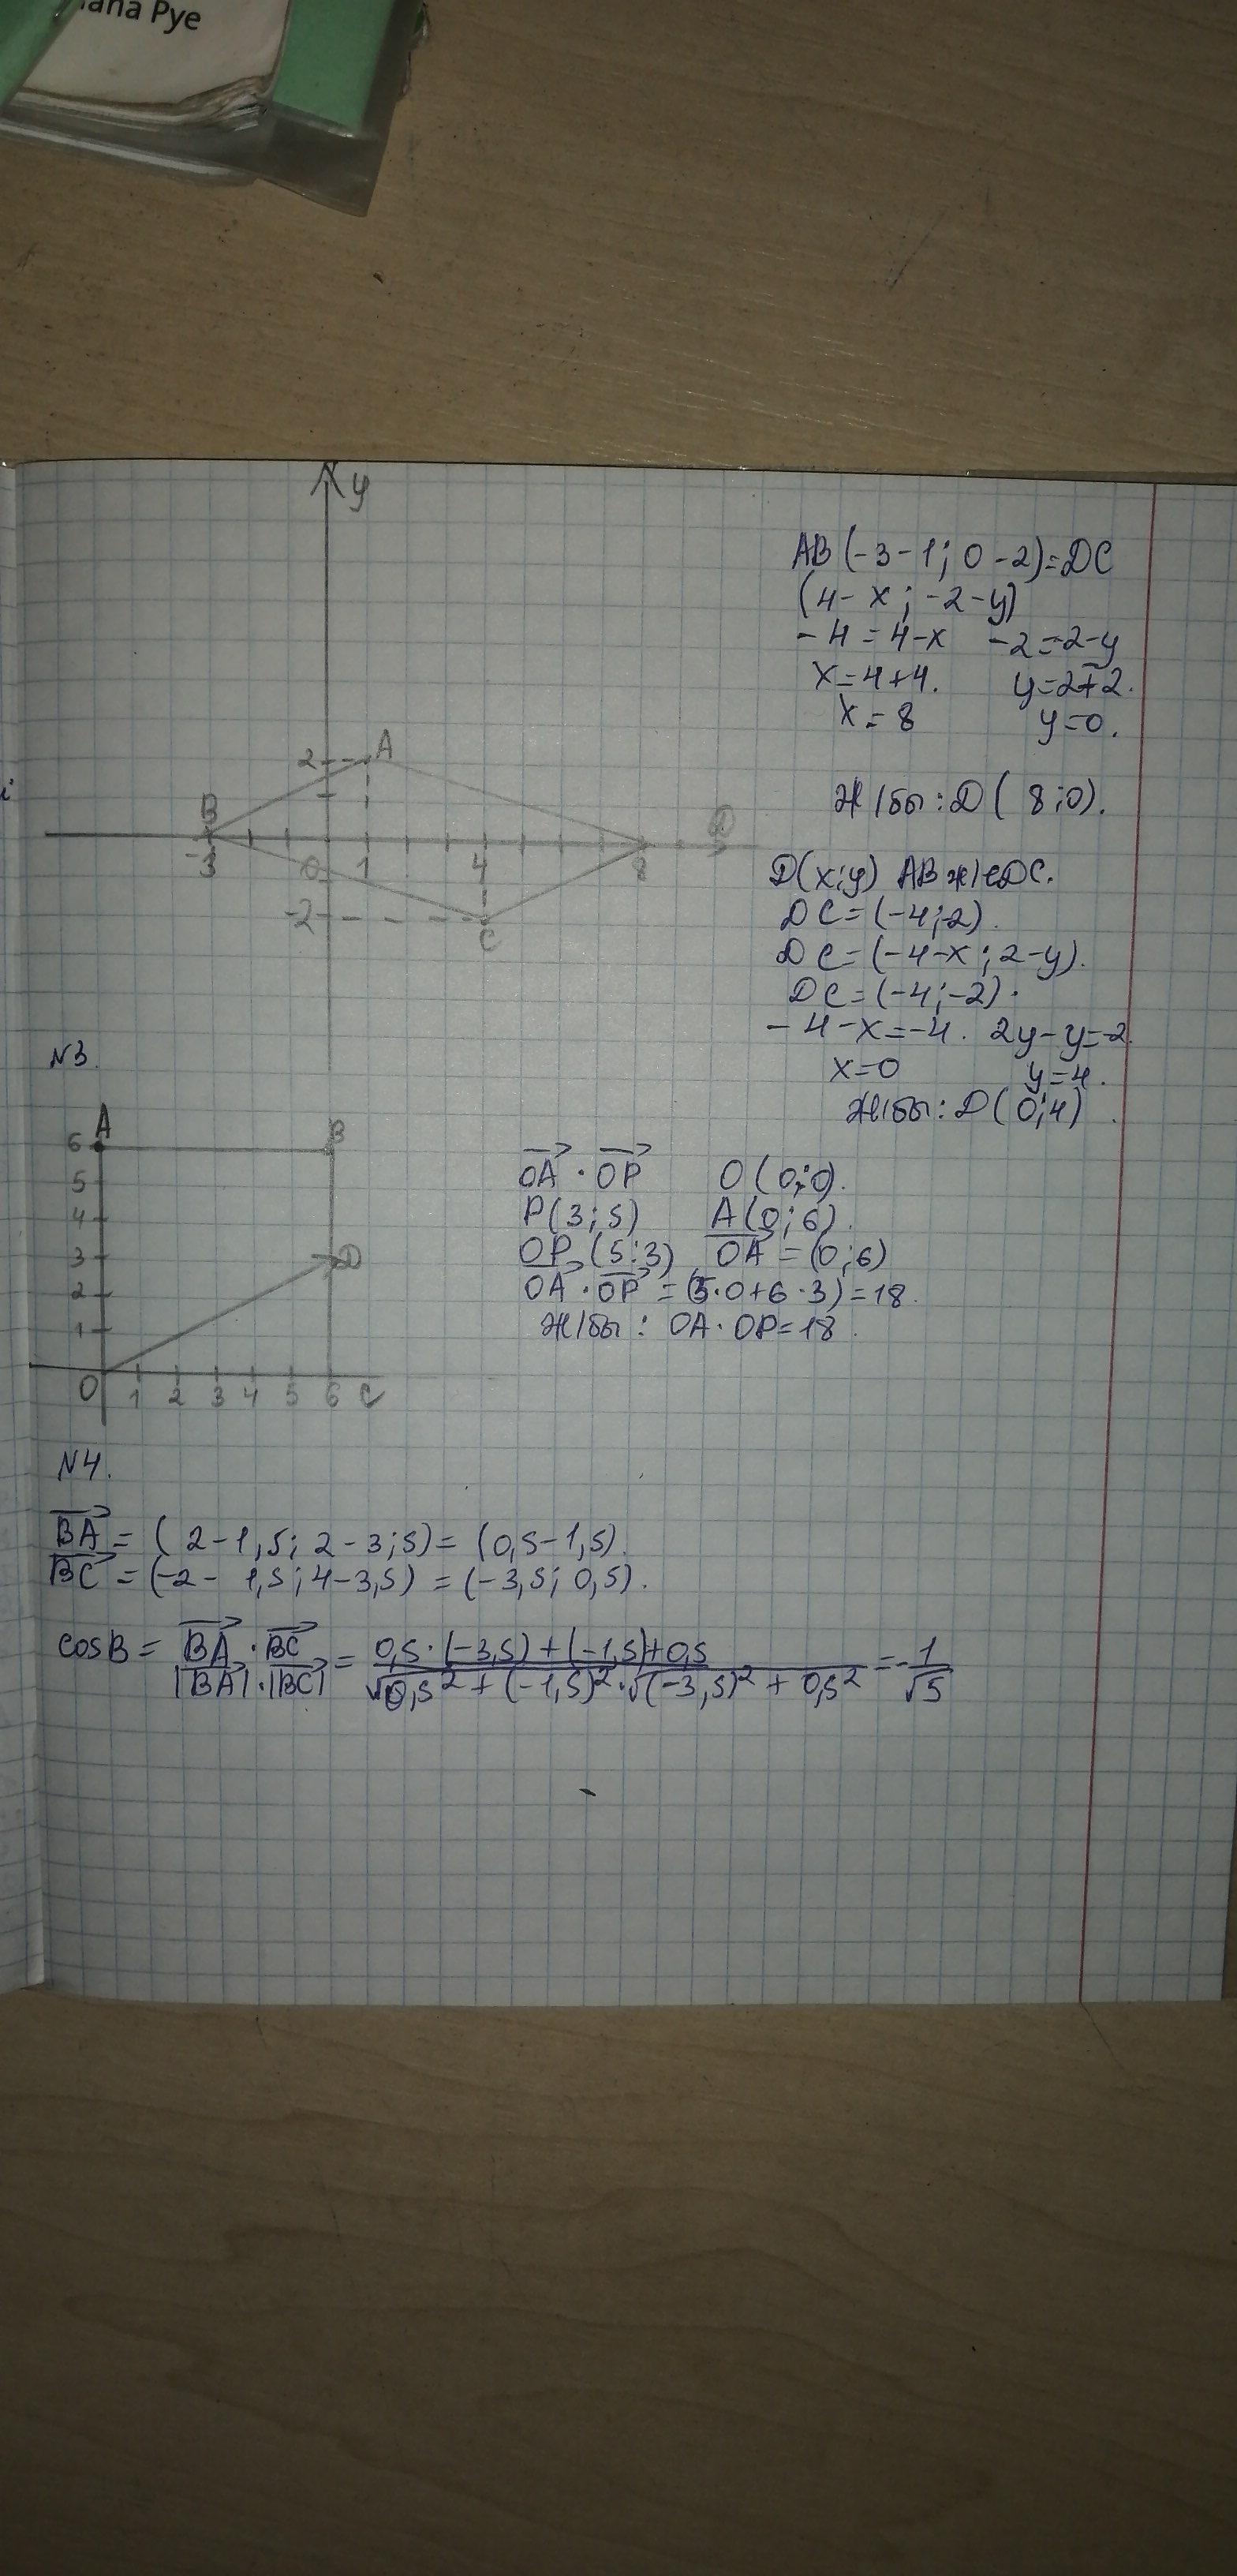 Pye
y
AB (-3-1; 0-2)=DC
(4-x; -2-y)
-4=4-x -2=-2-y
x=4+4. y=2-2.
x=8 y=0.
Ж/бы: D(8;0).
2 A
B D
-3 0 1 4 8
-2 C
D(x;y) AB ж/е DC.
DC=(-4;-2).
DC=(-4-x; 2-y).
DC=(-4;-2).
-4-x=-4. 2y-y=-2.
x=0 y=4.
Ж/бы: D(0;4).
N3.
A B
6
5
4
3 D
2
1
0 1 2 3 4 5 6 C
OA · OP O(0;0).
P(3;5) A(0;6).
OP (5:3) OA = (0;6)
OA · OP = (5·0+6·3)=18.
Ж/бы: OA·OP=18.
N4.
BA = (2-1,5; 2-3;5) = (0,5-1,5).
BC = (-2-1,5; 4-3,5) = (-3,5; 0,5).
cosB = BA · BC = 0,5·(-3,5)+(-1,5)+0,5 = -1
|BA|·|BC| √0,5²+(-1,5)²·√(-3,5)²+0,5² √5